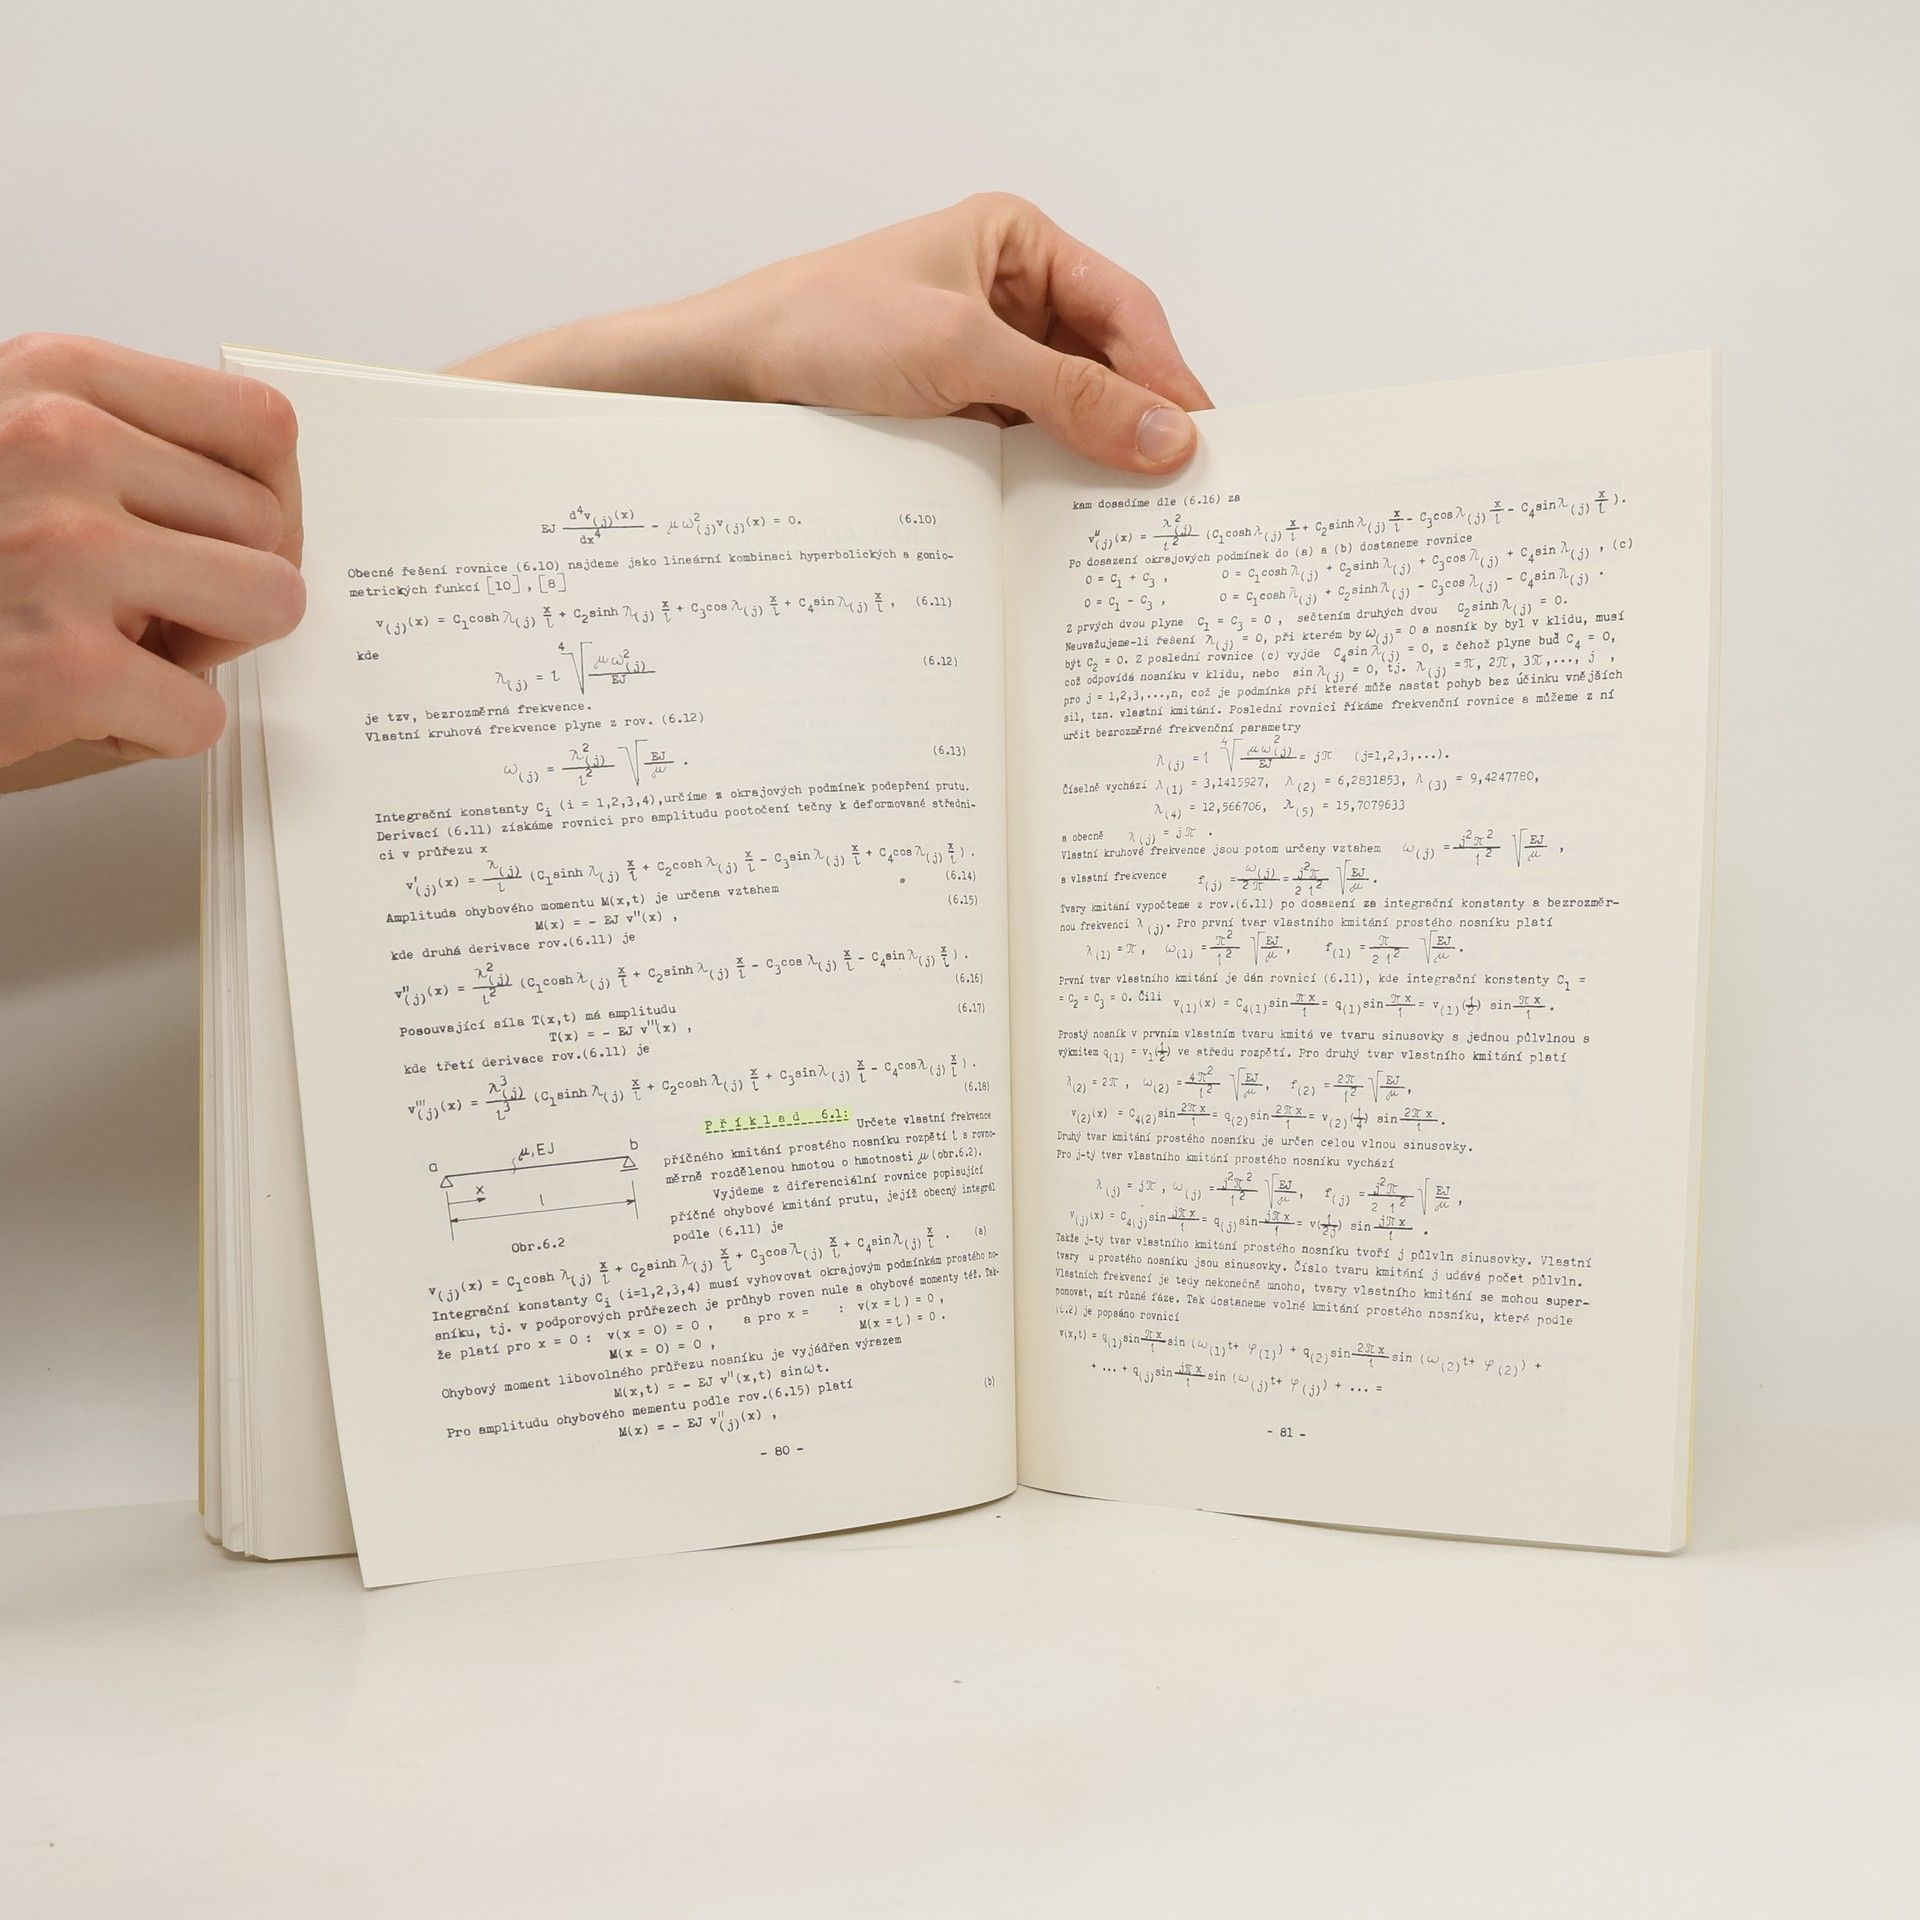 EJ d⁴v(j)(x)/dx⁴ - μω²(j)v(j)(x) = 0. (6.10)
Obecné řešení rovnice (6.10) najdeme jako lineární kombinaci hyperbolických a gonio-
metrických funkcí [10] , [8]
v(j)(x) = C₁cosh λ(j) x/l + C₂sinh λ(j) x/l + C₃cos λ(j) x/l + C₄sin λ(j) x/l , (6.11)
kde
λ(j) = l ⁴√(μω²(j)/EJ) (6.12)
je tzv, bezrozměrná frekvence.
Vlastní kruhová frekvence plyne z rov. (6.12)
ω(j) = λ²(j)/l² √(EJ/μ) . (6.13)
Integrační konstanty Cᵢ (i = 1,2,3,4),určíme z okrajových podmínek podepření prutu.
Derivací (6.11) získáme rovnici pro amplitudu pootočení tečny k deformované středni-
ci v průřezu x
v'(j)(x) = λ(j)/l (C₁sinh λ(j) x/l + C₂cosh λ(j) x/l - C₃sin λ(j) x/l + C₄cos λ(j) x/l ) .
(6.14)
Amplituda ohybového momentu M(x,t) je určena vztahem
M(x) = - EJ v''(x) , (6.15)
kde druhá derivace rov.(6.11) je
v''(j)(x) = λ²(j)/l² (C₁cosh λ(j) x/l + C₂sinh λ(j) x/l - C₃cos λ(j) x/l - C₄sin λ(j) x/l ) .
(6.16)
Posouvající síla T(x,t) má amplitudu
T(x) = - EJ v'''(x) , (6.17)
kde třetí derivace rov.(6.11) je
v'''(j)(x) = λ³(j)/l³ (C₁sinh λ(j) x/l + C₂cosh λ(j) x/l + C₃sin λ(j) x/l - C₄cos λ(j) x/l ) .
(6.18)
Příklad 6.1: Určete vlastní frekvence
příčného kmitání prostého nosníku rozpětí l s rovno-
měrně rozdělenou hmotou o hmotnosti μ (obr.6.2).
Vyjdeme z diferenciální rovnice popisující
příčné ohybové kmitání prutu, jejíž obecný integrál
podle (6.11) je
a μ,EJ b
x
l
Obr.6.2
v(j)(x) = C₁cosh λ(j) x/l + C₂sinh λ(j) x/l + C₃cos λ(j) x/l + C₄sin λ(j) x/l . (a)
Integrační konstanty Cᵢ (i=1,2,3,4) musí vyhovovat okrajovým podmínkám prostého no-
sníku, tj. v podporových průřezech je průhyb roven nule a ohybové momenty též. Tak-
že platí pro x = 0 : v(x = 0) = 0 , a pro x = : v(x = l) = 0 ,
M(x = 0) = 0 , M(x = l) = 0 .
Ohybový moment libovolného průřezu nosníku je vyjádřen výrazem
M(x,t) = - EJ v''(x,t) sinωt.
Pro amplitudu ohybového mementu podle rov.(6.15) platí (b)
M(x) = - EJ v''(j)(x) ,
- 80 -
kam dosadíme dle (6.16) za
v''(j)(x) = λ²(j)/l² (C₁cosh λ(j) x/l + C₂sinh λ(j) x/l - C₃cos λ(j) x/l - C₄sin λ(j) x/l ).
Po dosazení okrajových podmínek do (a) a (b) dostaneme rovnice
0 = C₁ + C₃ , 0 = C₁cosh λ(j) + C₂sinh λ(j) + C₃cos λ(j) + C₄sin λ(j) , (c)
0 = C₁ - C₃ , 0 = C₁cosh λ(j) + C₂sinh λ(j) - C₃cos λ(j) - C₄sin λ(j) .
Z prvých dvou plyne C₁ = C₃ = 0 , sečtením druhých dvou C₂sinh λ(j) = 0.
Neuvažujeme-li řešení λ(j) = 0, při kterém by ω(j) = 0 a nosník by byl v klidu, musí
být C₂ = 0. Z poslední rovnice (c) vyjde C₄sin λ(j) = 0, z čehož plyne buď C₄ = 0,
což odpovídá nosníku v klidu, nebo sin λ(j) = 0, tj. λ(j) = π, 2π, 3π,..., j ,
pro j = 1,2,3,...,n, což je podmínka při které může nastat pohyb bez účinku vnějších
sil, tzn. vlastní kmitání. Poslední rovnici říkáme frekvenční rovnice a můžeme z ní
určit bezrozměrné frekvenční parametry
λ(j) = l ⁴√(μω²(j)/EJ) = jπ (j=1,2,3,...).
Číselně vychází λ(1) = 3,1415927, λ(2) = 6,2831853, λ(3) = 9,4247780,
λ(4) = 12,566706, λ(5) = 15,7079633
a obecně λ(j) = jπ .
Vlastní kruhové frekvence jsou potom určeny vztahem ω(j) = j²π²/l² √(EJ/μ) ,
a vlastní frekvence f(j) = ω(j)/2π = j²π/2 l² √(EJ/μ) .
Tvary kmitání vypočteme z rov.(6.11) po dosazení za integrační konstanty a bezrozměr-
nou frekvenci λ(j). Pro první tvar vlastního kmitání prostého nosníku platí
λ(1) = π , ω(1) = π²/l² √(EJ/μ) , f(1) = π/2 l² √(EJ/μ) .
První tvar vlastního kmitání je dán rovnicí (6.11), kde integrační konstanty C₁ =
= C₂ = C₃ = 0. Čili v(1)(x) = C₄(1)sin πx/l = q(1)sin πx/l = v(1)(l/2) sin πx/l .
Prostý nosník v prvním vlastním tvaru kmitá ve tvaru sinusovky s jednou půlvlnou s
výkmitem q(1) = v₁(l/2) ve středu rozpětí. Pro druhý tvar vlastního kmitání platí
λ(2) = 2π , ω(2) = 4π²/l² √(EJ/μ) , f(2) = 2π/l² √(EJ/μ) ,
v(2)(x) = C₄(2)sin 2πx/l = q(2)sin 2πx/l = v(2)(l/4) sin 2πx/l .
Druhý tvar kmitání prostého nosníku je určen celou vlnou sinusovky.
Pro j-tý tvar vlastního kmitání prostého nosníku vychází
λ(j) = jπ , ω(j) = j²π²/l² √(EJ/μ) , f(j) = j²π/2 l² √(EJ/μ) ,
v(j)(x) = C₄(j)sin jπx/l = q(j)sin jπx/l = v(l/2j) sin jπx/l .
Takže j-tý tvar vlastního kmitání prostého nosníku tvoří j půlvln sinusovky. Vlastní
tvary u prostého nosníku jsou sinusovky. Číslo tvaru kmitání j udává počet půlvln.
Vlastních frekvencí je tedy nekonečně mnoho, tvary vlastního kmitání se mohou super-
ponovat, mít různé fáze. Tak dostaneme volné kmitání prostého nosníku, které podle
(6.2) je popsáno rovnicí
v(x,t) = q(1)sin πx/l sin (ω(1)t+ φ(1)) + q(2)sin 2πx/l sin (ω(2)t+ φ(2)) +
+ ... + q(j)sin jπx/l sin (ω(j)t+ φ(j)) + ... =
- 81 -